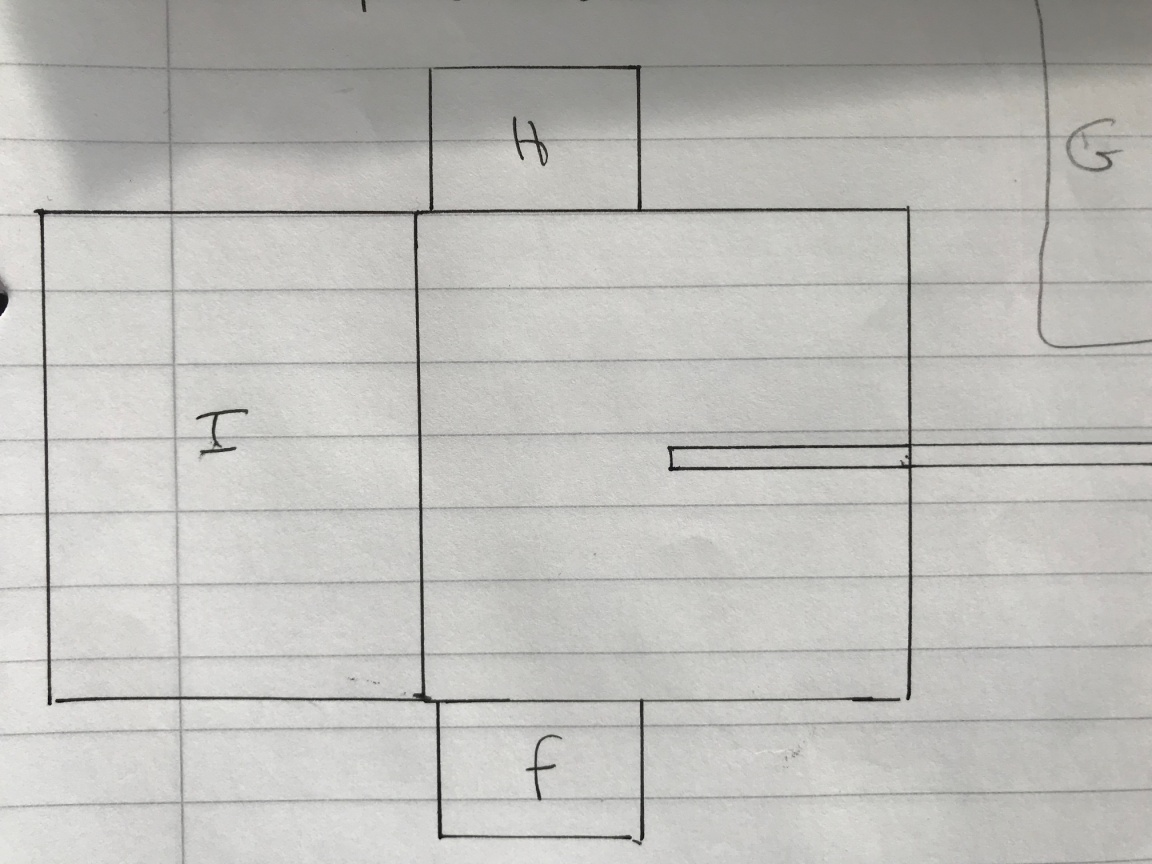 H
G
I
f